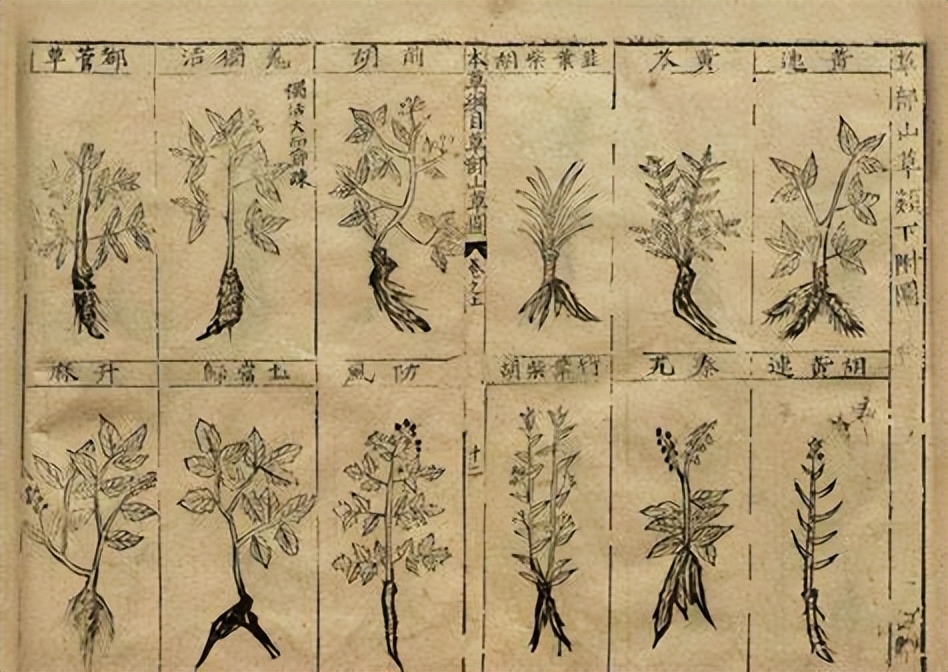 草部山草類下附圖
黄連
黄芩
韭葉柴胡
胡黄連
秦艽
竹葉柴胡
本草綱目草部山草圖
卷之上
前胡
羌獨活
獨活大而節疎
都管草
防風
土當歸
升麻